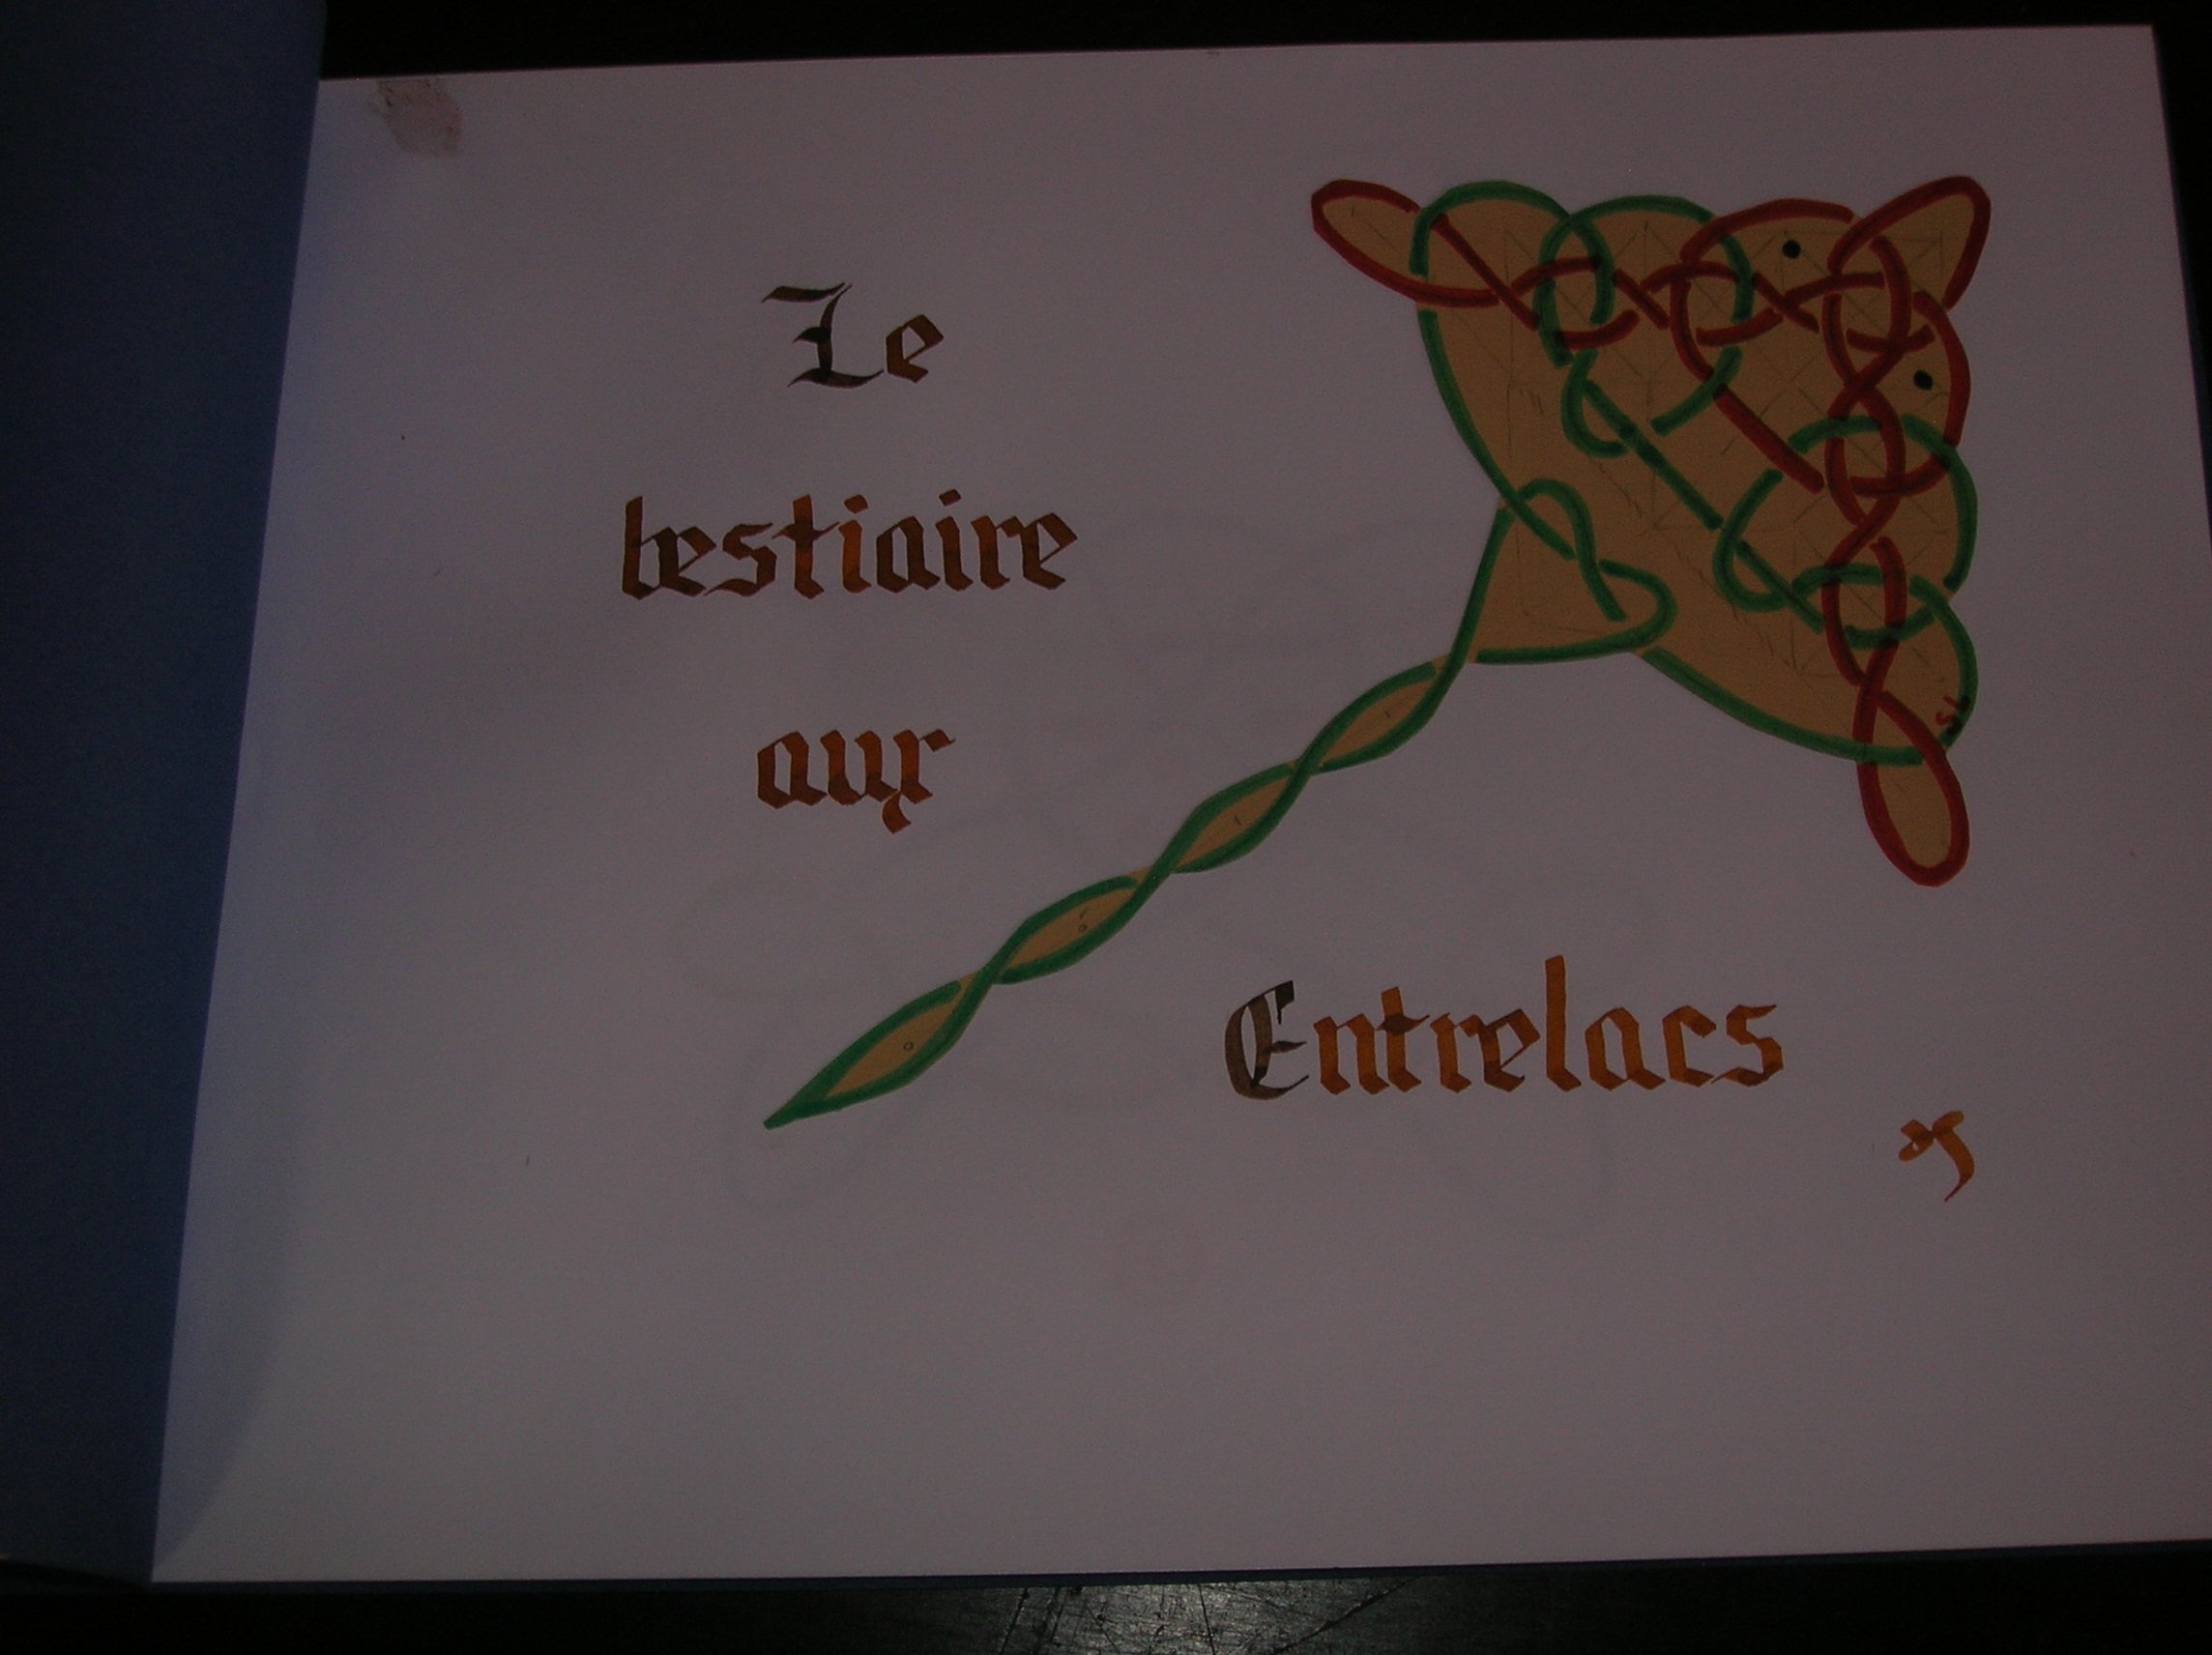 Le
bestiaire
aux
Entrelacs